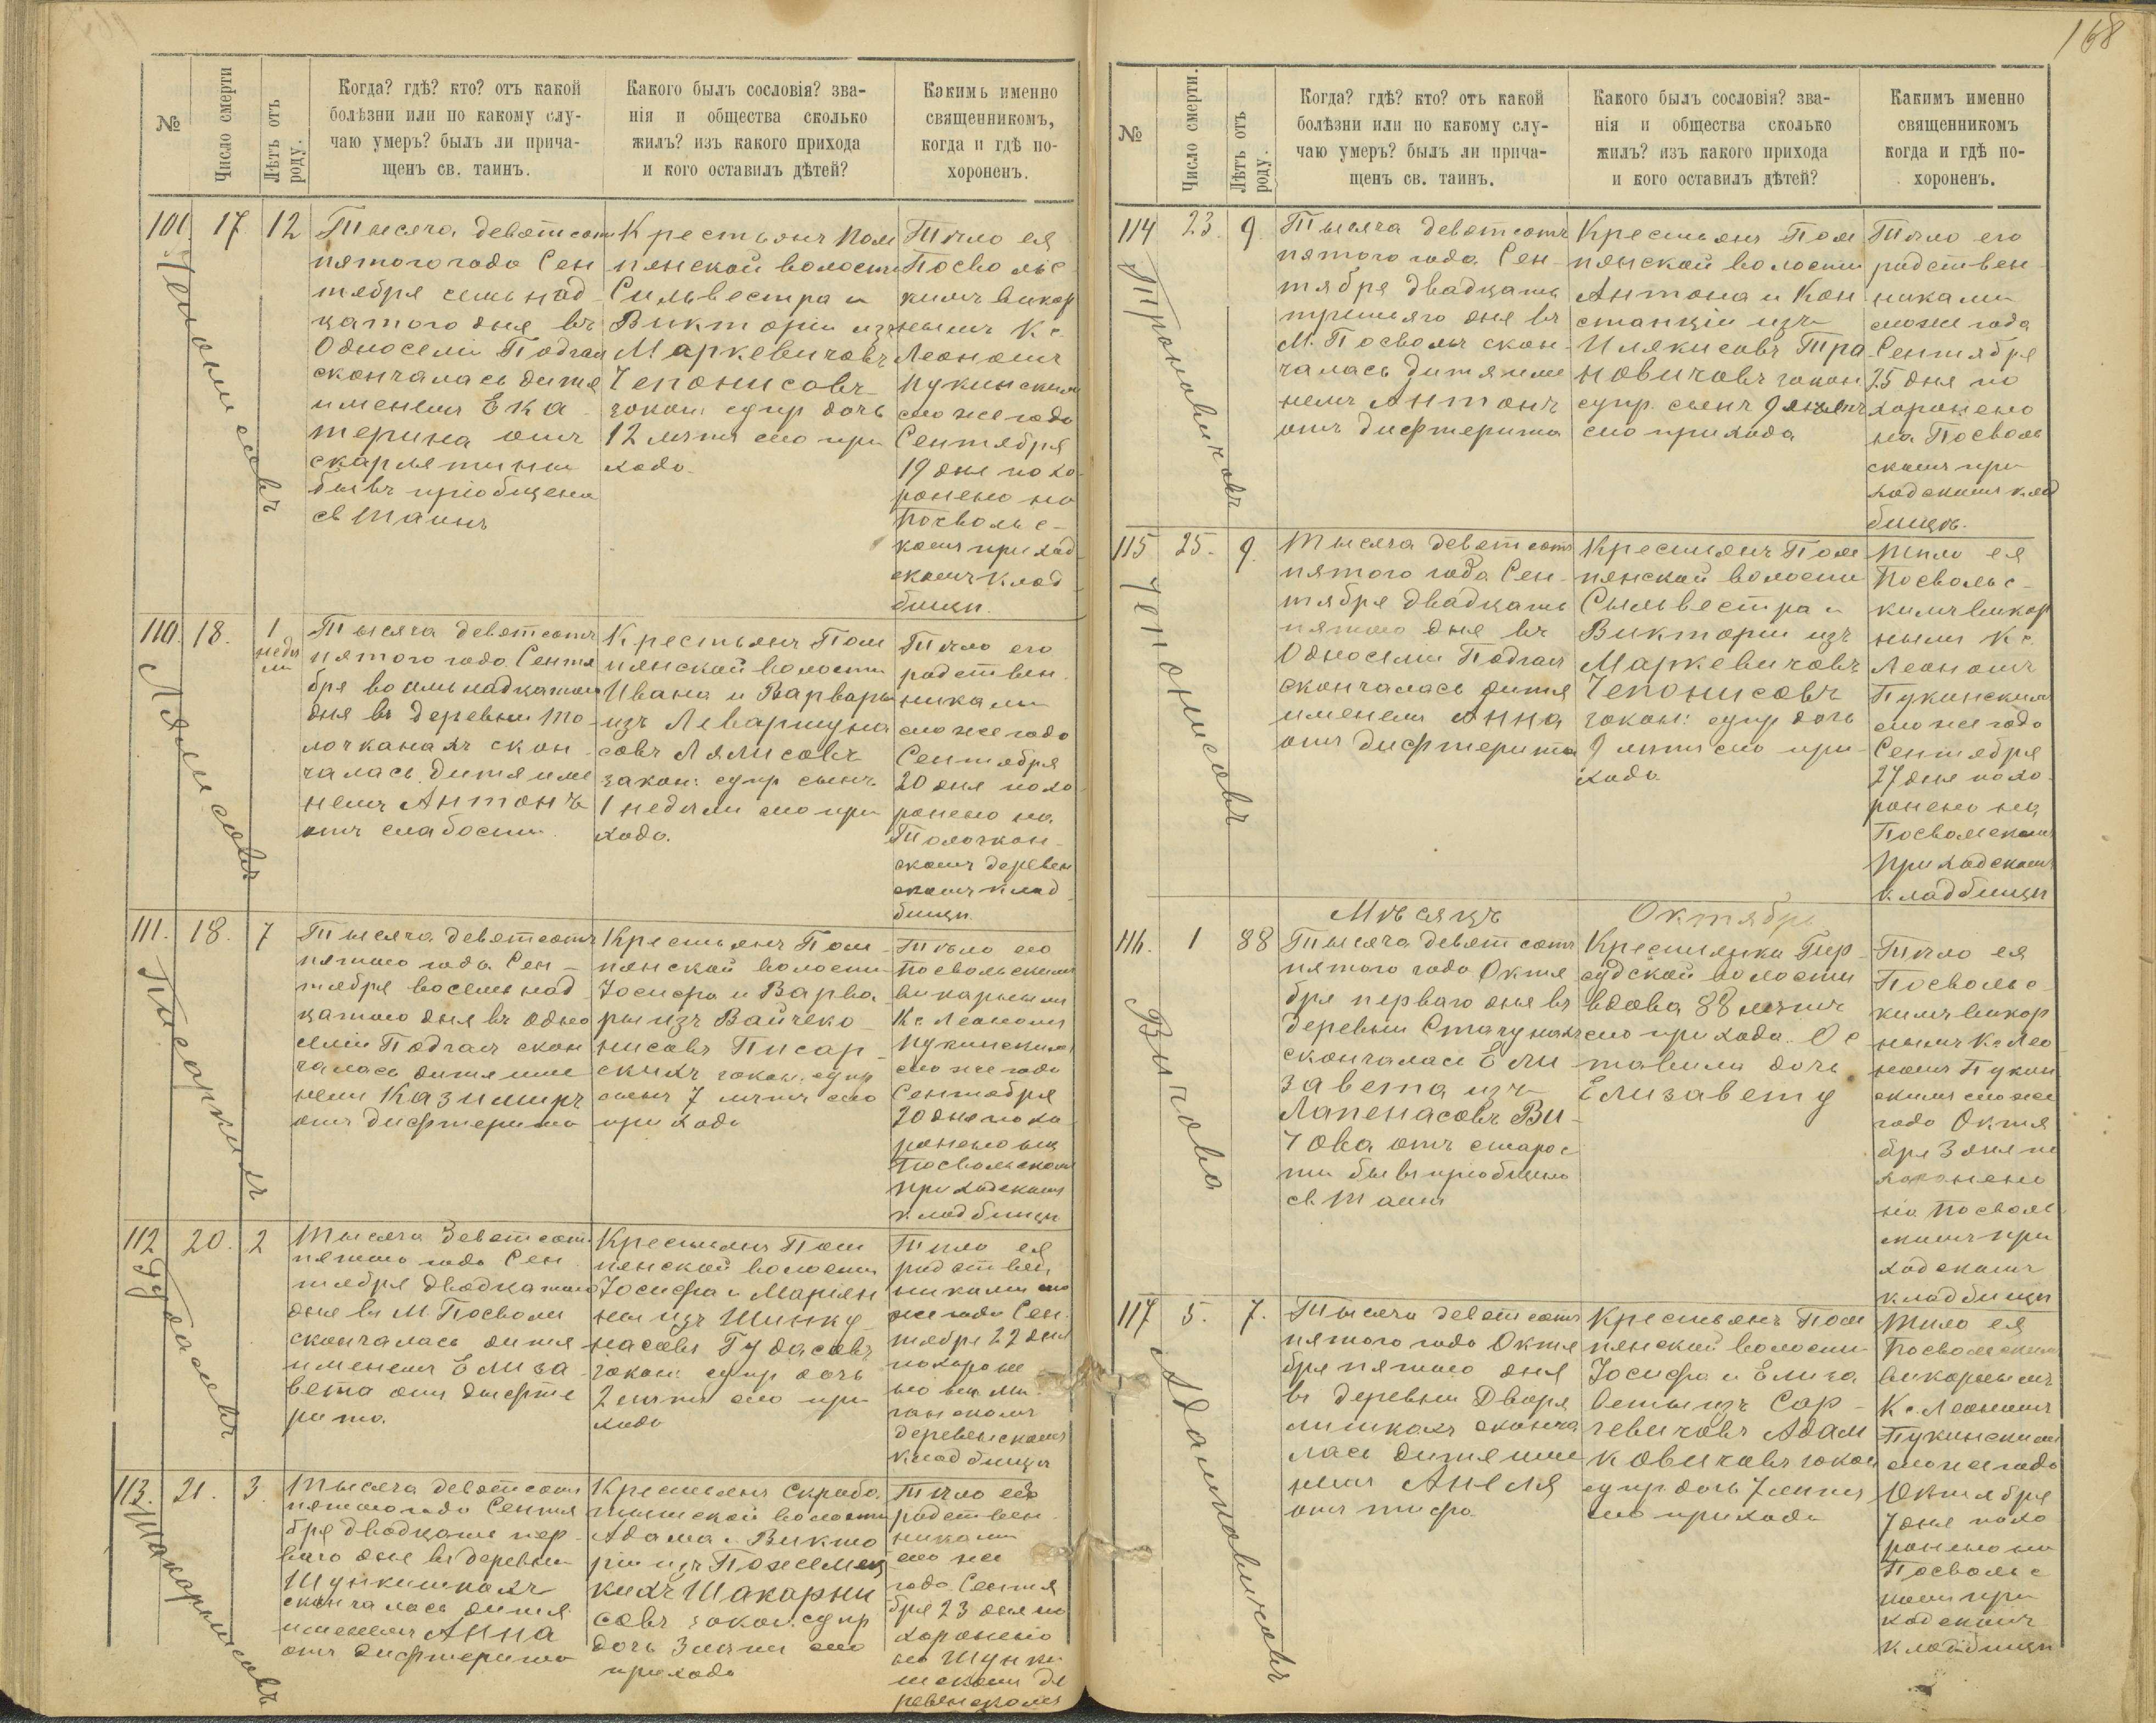 168
№
Число смерти
Лѣтъ отъ роду.
Когда? гдѣ? кто? отъ какой
болѣзни или по какому слу-
чаю умеръ? былъ ли прича-
щенъ св. таинъ.
Какого былъ сословія? зва-
нія и общества сколько
жилъ? изъ какого прихода
и кого оставилъ дѣтей?
Какимъ именно
священникомъ,
когда и гдѣ по-
хороненъ.
101.
17
12
Чепонисовъ
Тысяча девятсотъ
пятого года Сен
тября семьнад
цатого дня въ
Односели Подгай
скончалась дитя
именемъ Ека
терина отъ
скарлятини
бывъ приобщена
св Таинъ
Крестьянъ Пом
пянской волости
Сильвестра и
Виктории изъ
Маркевичовъ
Чепонисовъ
закон: супр дочь
12 лѣтъ сего при
хода.
Тѣло ея
Посвольс
кимъ викар
нымъ Кс.
Леономъ
Пукинскимъ
сего же года
Сентября
19 дня похо
ронено на
Посвольс-
комъ приход
скомъ клад
бищи.
110.
18.
1 недѣ
ли
Лялисовъ
Тысяча девятсотъ
пятого года Сентя
бря восемьнадцатого
дня въ деревни То
лочканахъ скон
чалась дитя име
немъ Антонъ
отъ слабости.
Крестьянъ Пом
пянской волости
Ивана и Варвары
изъ Леваршуна
совъ Лялисовъ
закон: супр сынъ
1 недѣли сего при
хода.
Тѣло его
родствен
никами
сего же года
Сентября
20 дня похо
ронено на
Толочкан-
скомъ деревен
скомъ клад
бищи
111.
18.
7
Писарскихъ
Тысяча девятсотъ
пятого года Сен-
тября восемьнад
цатого дня въ одно
селіи Подгай скон
чалась дитя име
немъ Казимиръ
отъ дифтерита
Крестьянъ Пом-
пянской волости
Іосифа и Варва
ры изъ Вайчеко
нисовъ Писар-
скихъ закон. супр
сынъ 7 лѣтъ сего
прихода
Тѣло его
Посвольскимъ
викарнымъ
Кс Леономъ
Пукинскимъ
сего же года
Сентября
20 дня похо
ронено на
Посвольскомъ
приходскомъ
кладбищи
112
20.
2
Гудасовъ
Тысяча девятсотъ
пятого года Сен
тября двадцатого
дня въ М. Посволи
скончалась дитя
именемъ Елиза
вета отъ дифте
рита.
Крестьянъ Пом
пянской волости
Іосифа и Марьян
ны изъ Шинку
насовъ Гудасовъ
закон: супр дочь
2 лѣтъ сего при
хода
Тѣло ея
родствен
никами сего
же года Сен
тября 22 дня
похороне
но на
деревенскомъ
кладбищи
113.
21.
3.
Шакарнисовъ
Тысяча девятсотъ
пятого года Сентя
бря двадцать пер-
ваго дня въ деревни
Шункишкахъ
скончалась дитя
именемъ Анна
отъ дифтерита
Крестьянъ Скробо
тишской волости
Адама и Викто
рии изъ
кихъ Шакарни
совъ закон. супр
дочь 3 лѣтъ сего
прихода
Тѣло ея
родствен
никами
сего же
года Сентя
бря 23 дня по
хоронено
на Шунки
шскомъ де
ревенскомъ
№
Число смерти.
Лѣтъ отъ роду.
Когда? гдѣ? кто? отъ какой
болѣзни или по какому слу-
чаю умеръ? былъ ли прича-
щенъ св. таинъ.
Какого былъ сословія? зва-
нія и общества сколько
жилъ? изъ какого прихода
и кого оставилъ дѣтей?
Какимъ именно
священникомъ
когда и гдѣ по-
хороненъ.
114
23.
9.
Трановичовъ
Тысяча девятсотъ
пятого года Сен-
тября двадцать
третьяго дня въ
М. Посволь скон-
чалась дитя име
немъ Антонъ
отъ дифтерита
Крестьянъ Пом
пянской волости
Антона и Кон
станціи изъ
Илякисовъ Тра
новичовъ закон
супр. сынъ 9 лѣтъ
сего прихода
Тѣло его
родствен
никами
сего же года
Сентября
25 дня по
хоронено
на Посволь
скомъ при
ходскомъ клад
бищѣ.
115
25.
9.
Чепонисовъ
Тысяча девятсотъ
пятого года Сен-
тября двадцать
пятого дня въ
Односели Подгай
скончалась дитя
именемъ Анна
отъ дифтерита
Крестьянъ Пом
пянской волости
Сыльвестра и
Виктории изъ
Маркевичовъ
Чепонисовъ
закон: супр дочь
9 лѣтъ сего при-
хода
Тѣло ея
Посвольс-
кимъ викар
нымъ Кс.
Леономъ
Пукинскимъ
сего же года
Сентября
27 дня похо
ронено на
Посвольскомъ
приходскомъ
кладбищи
Мѣсяцъ Октябрь
116.
1
88
Вичова
Тысяча девятсотъ
пятого года Октя
бря перваго дня въ
деревни Стачунахъ
скончалась Ели
завета изъ
Лапенасовъ Ви-
чова отъ старос
ти бывъ приобщена
св Таинъ
Крестьянка Пир-
судской волости
вдова 88 лѣтъ
сего прихода. Ос
тавила дочь
Елизавету
Тѣло ея
Посвольс
кимъ викар
нымъ Кс Лео
номъ Пукин
скимъ сего же
года Октя
бря 3 дня по
хоронено
на Посволь
скомъ при
ходскомъ
кладбищи
117
5.
7.
Адамковичовъ
Тысяча девятсотъ
пятого года Октя
бря пятого дня
въ деревни Дворя
лишкахъ сконча
лась дитя име
немъ Анеля
отъ тифа
Крестьянъ Пом
пянской волости
Іосифа и Елиза
веты изъ Сар-
гевичовъ Адам
ковичовъ закон
супр дочь 7 лѣтъ
сего прихода
Тѣло ея
Посвольскимъ
викарнымъ
Кс. Леономъ
Пукинскимъ
сего же года
Октября
7 дня похо
ронено на
Посвольс
комъ при
ходскомъ
кладбищи